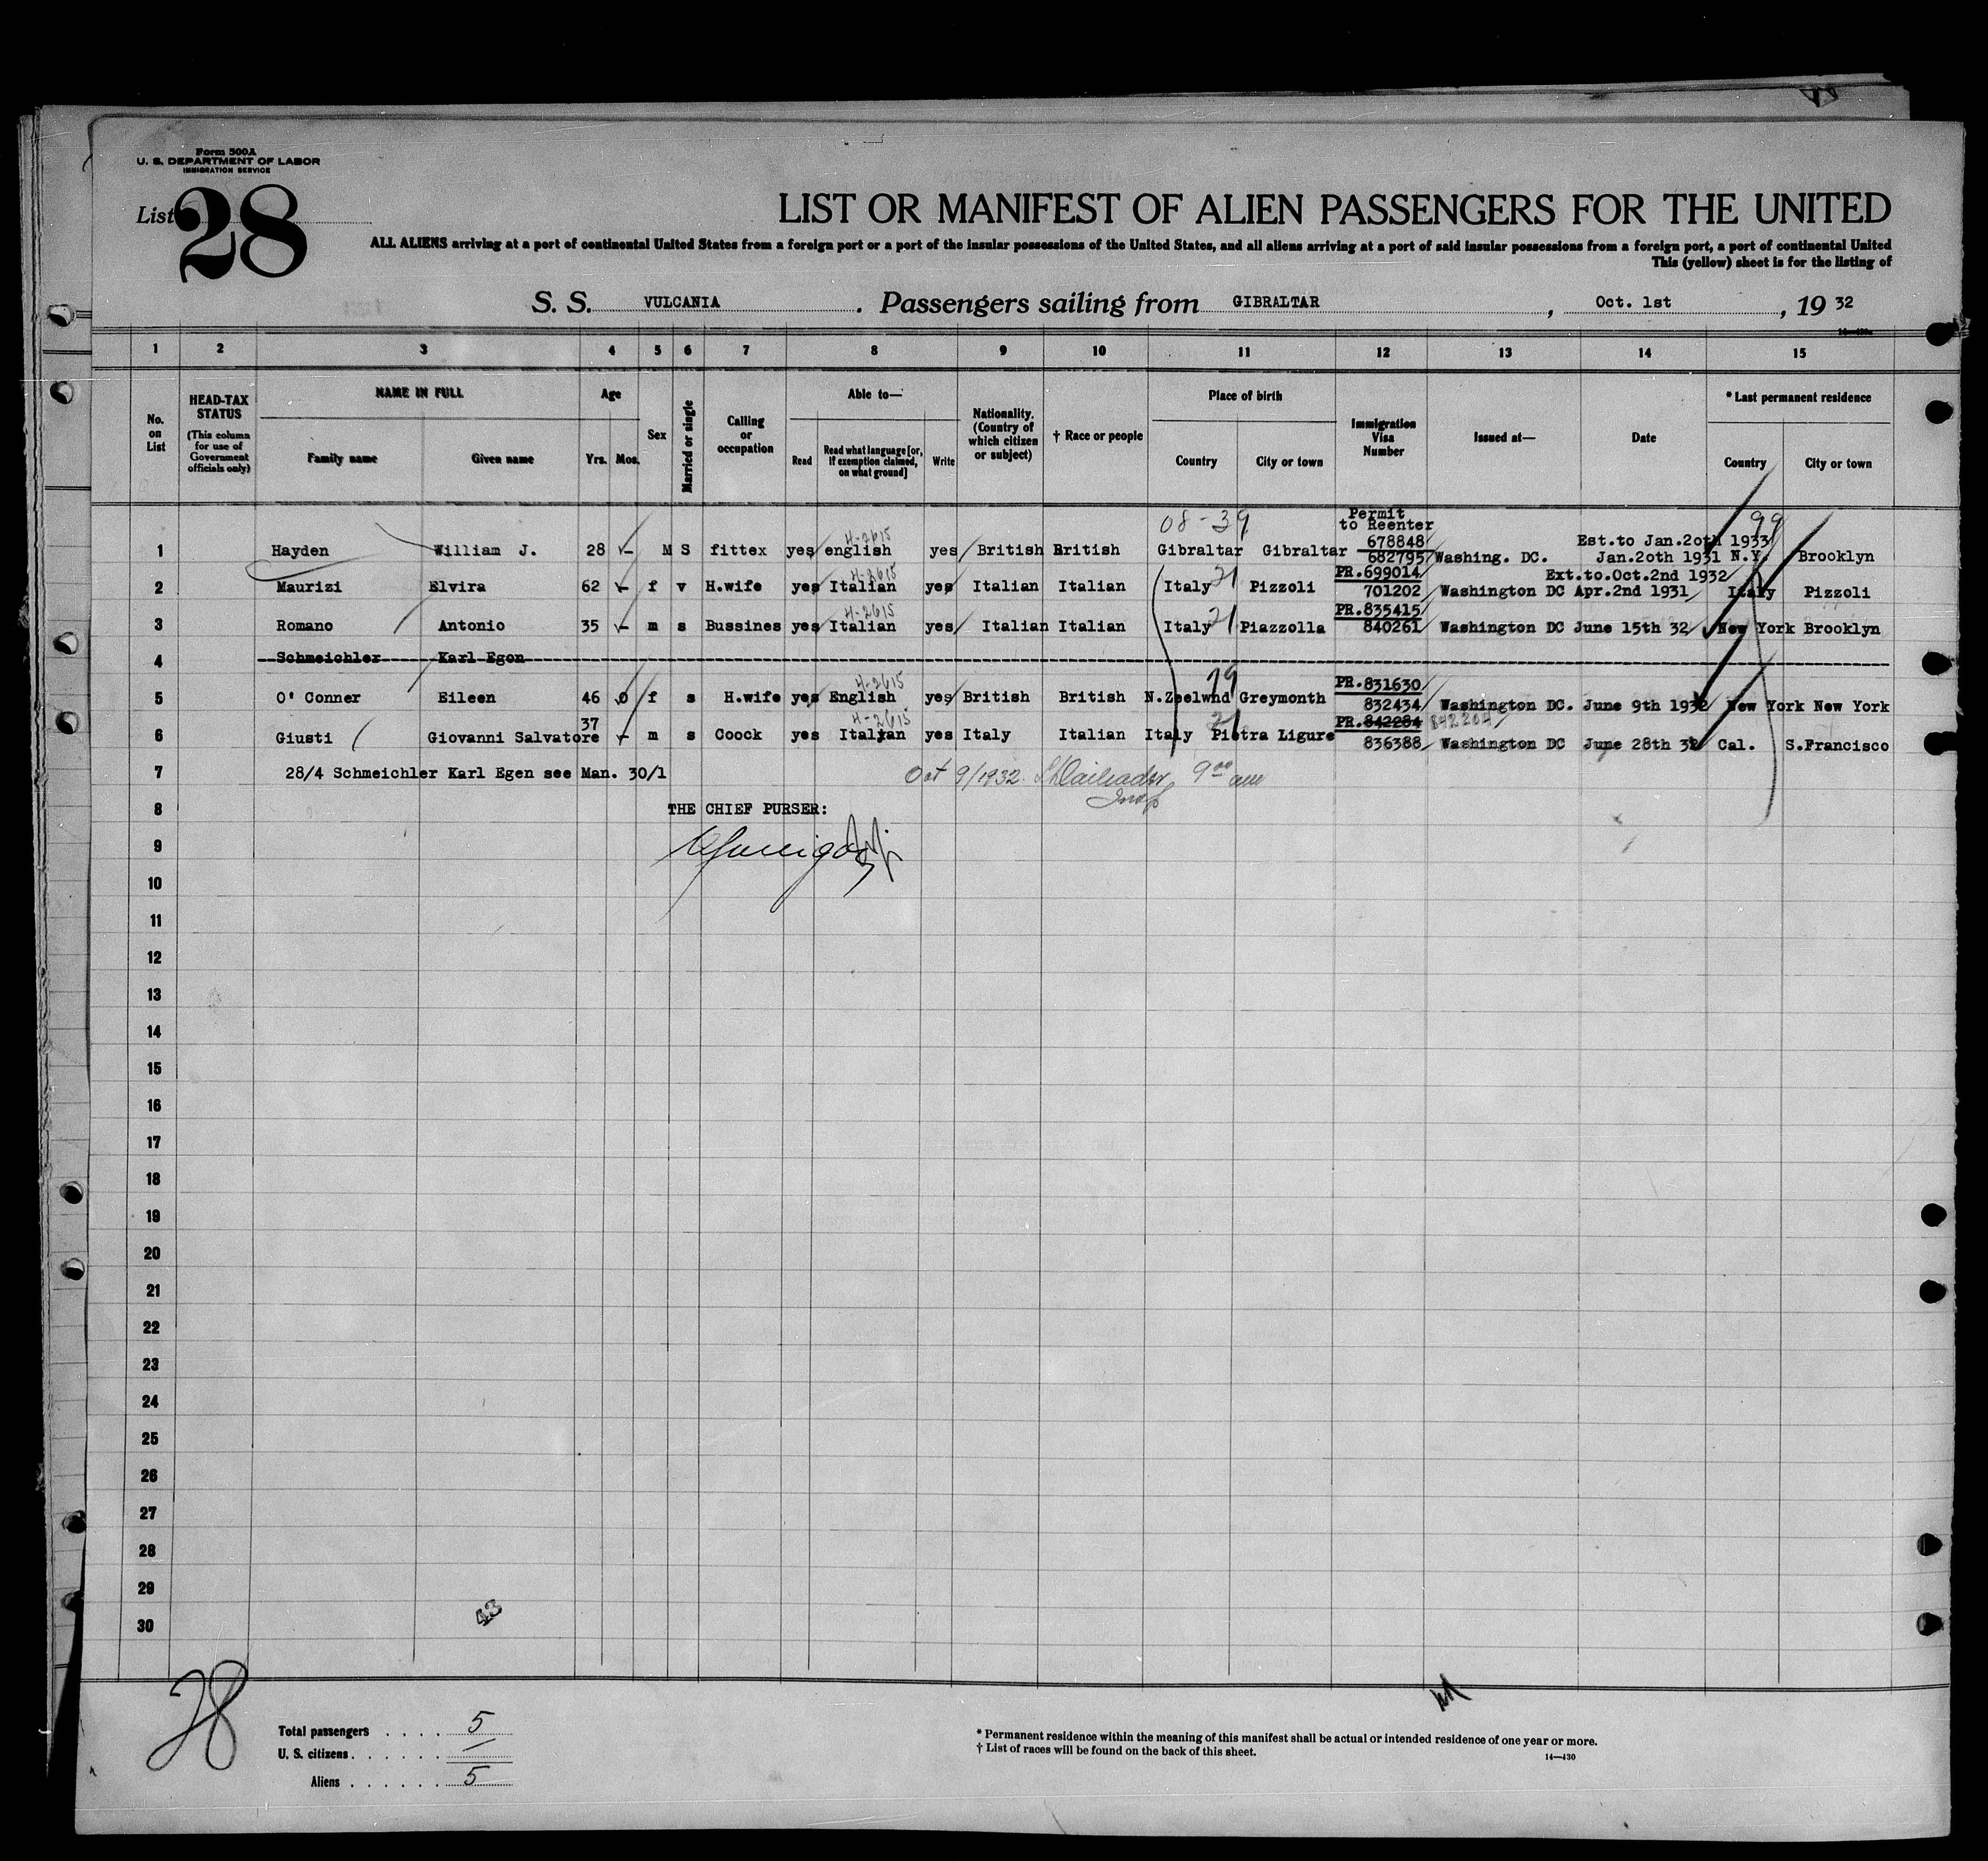 Form 500A
U. S. DEPARTMENT OF LABOR
IMMIGRATION SERVICE
List 28
LIST OR MANIFEST OF ALIEN PASSENGERS FOR THE UNITED
ALL ALIENS arriving at a port of continental United States from a foreign port or a port of the insular possessions of the United States, and all aliens arriving at a port of said insular possessions from a foreign port, a port of continental United
This (yellow) sheet is for the listing of
S. S. VULCANIA . Passengers sailing from GIBRALTAR , Oct. 1st , 19 32
1 2 3 4 5 6 7 8 9 10 11 12 13 14 15
No. on List
HEAD-TAX STATUS (This column for use of Government officials only)
NAME IN FULL
Family name Given name
Age
Yrs. Mos.
Sex
Married or single
Calling or occupation
Able to—
Read Read what language [or, if exemption claimed, on what ground] Write
Nationality. (Country of which citizen or subject)
† Race or people
Place of birth
Country City or town
Immigration Visa Number
Issued at—
Date
* Last permanent residence
Country City or town
08-39 Permit to Reenter 99
4-2615 678848 Est.to Jan.2oth 1933
1 Hayden William J. 28 - M S fittex yes english yes British British Gibraltar Gibraltar 682795 Washing. DC. Jan.2oth 1931 N.Y. Brooklyn
4-2615 PR.699014 Ext.to.Oct.2nd 1932
2 Maurizi Elvira 62 - f v H.wife yes Italian yes Italian Italian Italy 21 Pizzoli 701202 Washington DC Apr.2nd 1931 Italy Pizzoli
4-2615 PR.835415
3 Romano Antonio 35 - m s Bussines yes Italian yes Italian Italian Italy 21 Piazzolla 840261 Washington DC June 15th 32 New York Brooklyn
4 Schmeichler Karl Egon
4-2615 19 PR.831630
5 O' Conner Eileen 46 0 f s H.wife yes English yes British British N.Zeelwnd Greymonth 832434 Washington DC. June 9th 1932 New York New York
37 4-2615 21 PR.842284 842204
6 Giusti Giovanni Salvatore - m s Coock yes Italyan yes Italy Italian Italy Pietra Ligure 836388 Washington DC June 28th 32 Cal. S.Francisco
7 28/4 Schmeichler Karl Egen see Man. 30/1 Oct 9/1932. 9 00 am
8 THE CHIEF PURSER:
9
10
11
12
13
14
15
16
17
18
19
20
21
22
23
24
25
26
27
28
29
30
43
28
Total passengers . . . . 5
U. S. citizens . . . . . . —
Aliens . . . . . . 5
* Permanent residence within the meaning of this manifest shall be actual or intended residence of one year or more.
† List of races will be found on the back of this sheet.
14—430